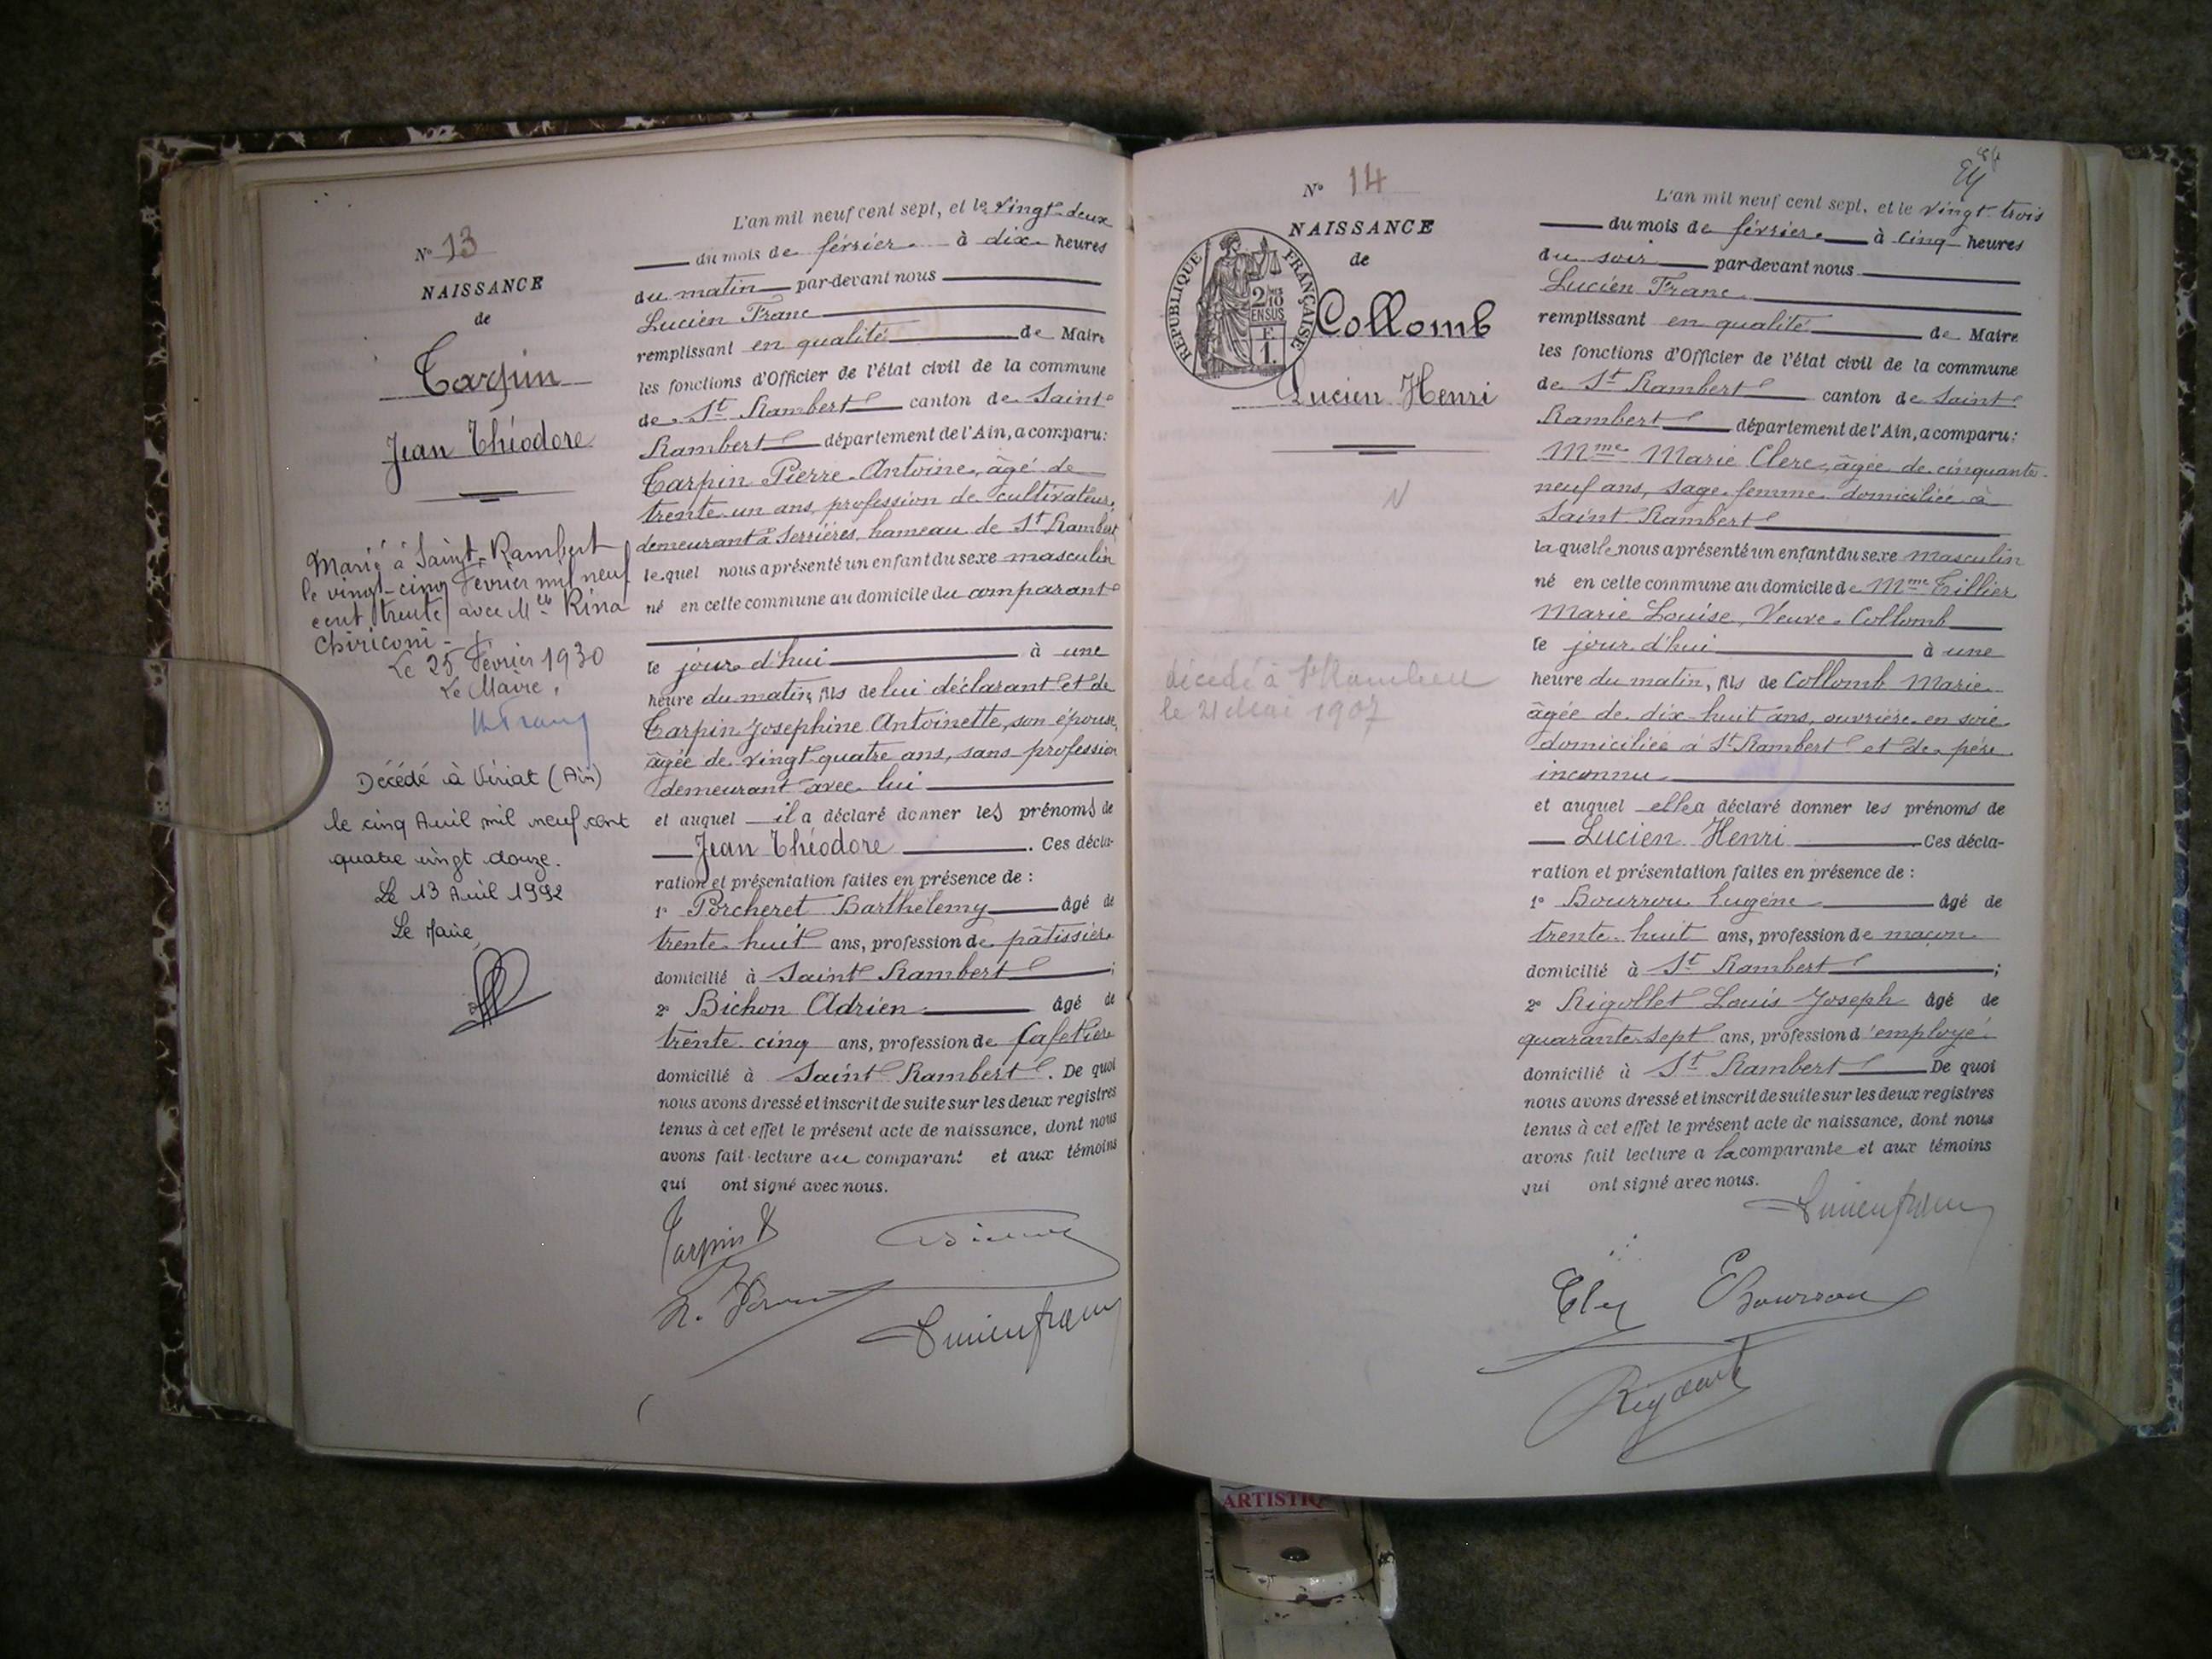 N° 13
NAISSANCE
de
Tarpin
Jean Théodore
Marié à Saint-Rambert
le vingt-cinq Février mil neuf
cent trente avec Mlle Rina
Chiriconi -
Le 25 Février 1930
Le Maire,
Décédé à Viriat (Ain)
le cinq Avril mil neuf cent
quatre vingt douze.
Le 13 Avril 1992
Le Maire
L'an mil neuf cent sept, et le vingt-deux
du mois de février à dix heures
du matin par-devant nous
Lucien Franc
remplissant en qualité de Maire
les fonctions d'Officier de l'état civil de la commune
de St Rambert canton de Saint
Rambert département de l'Ain, a comparu:
Tarpin Pierre Antoine, âgé de
trente un ans, profession de cultivateur,
demeurant à Serrières, hameau de St Rambert
lequel nous a présenté un enfant du sexe masculin
né en cette commune au domicile du comparant
le jour d'hui à une
heure du matin, fils de lui déclarant et de
Tarpin Josephine Antoinette, son épouse,
âgée de vingt quatre ans, sans profession
demeurant avec lui
et auquel il a déclaré donner les prénoms de
Jean Théodore. Ces décla-
ration et présentation faites en présence de :
1° Porcheret Barthélemy âgé de
trente huit ans, profession de pâtissier
domicilié à Saint Rambert ;
2° Bichon Adrien âgé de
trente cinq ans, profession de Cafetier
domicilié à Saint Rambert. De quoi
nous avons dressé et inscrit de suite sur les deux registres
tenus à cet effet le présent acte de naissance, dont nous
avons fait lecture au comparant et aux témoins
qui ont signé avec nous.
Tarpin
Lucien franc
84
N° 14
NAISSANCE
de
RÉPUBLIQUE FRANÇAISE
2/10
EN SUS
F
1.
Collomb
Lucien Henri
N
décédé à St Rambert
le 21 Mai 1907
L'an mil neuf cent sept, et le vingt trois
du mois de février à cinq heures
du soir par-devant nous
Lucien Franc
remplissant en qualité de Maire
les fonctions d'Officier de l'état civil de la commune
de St Rambert canton de Saint
Rambert département de l'Ain, a comparu:
Mme Marie Clerc, âgée de cinquante
neuf ans, sage femme domiciliée à
Saint Rambert
laquelle nous a présenté un enfant du sexe masculin
né en cette commune au domicile de Mme Tillier
Marie Louise, Veuve Collomb
le jour d'hui à une
heure du matin, fils de Collomb Marie
âgée de dix-huit ans, ouvrière en soie
domiciliée à St Rambert et de père
inconnu
et auquel elle a déclaré donner les prénoms de
Lucien Henri Ces décla-
ration et présentation faites en présence de :
1° Bourrou Eugène âgé de
trente huit ans, profession de maçon
domicilié à St Rambert ;
2° Rigollet Louis Joseph âgé de
quarante sept ans, profession d'employé
domicilié à St Rambert De quoi
nous avons dressé et inscrit de suite sur les deux registres
tenus à cet effet le présent acte de naissance, dont nous
avons fait lecture a la comparante et aux témoins
qui ont signé avec nous.
Lucien franc
E Bourrou
ARTISTIQ